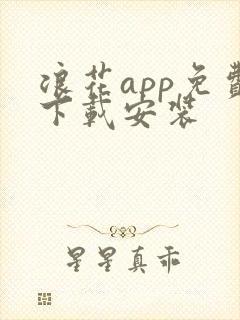 浪花app免费
下载安装
星星真乖